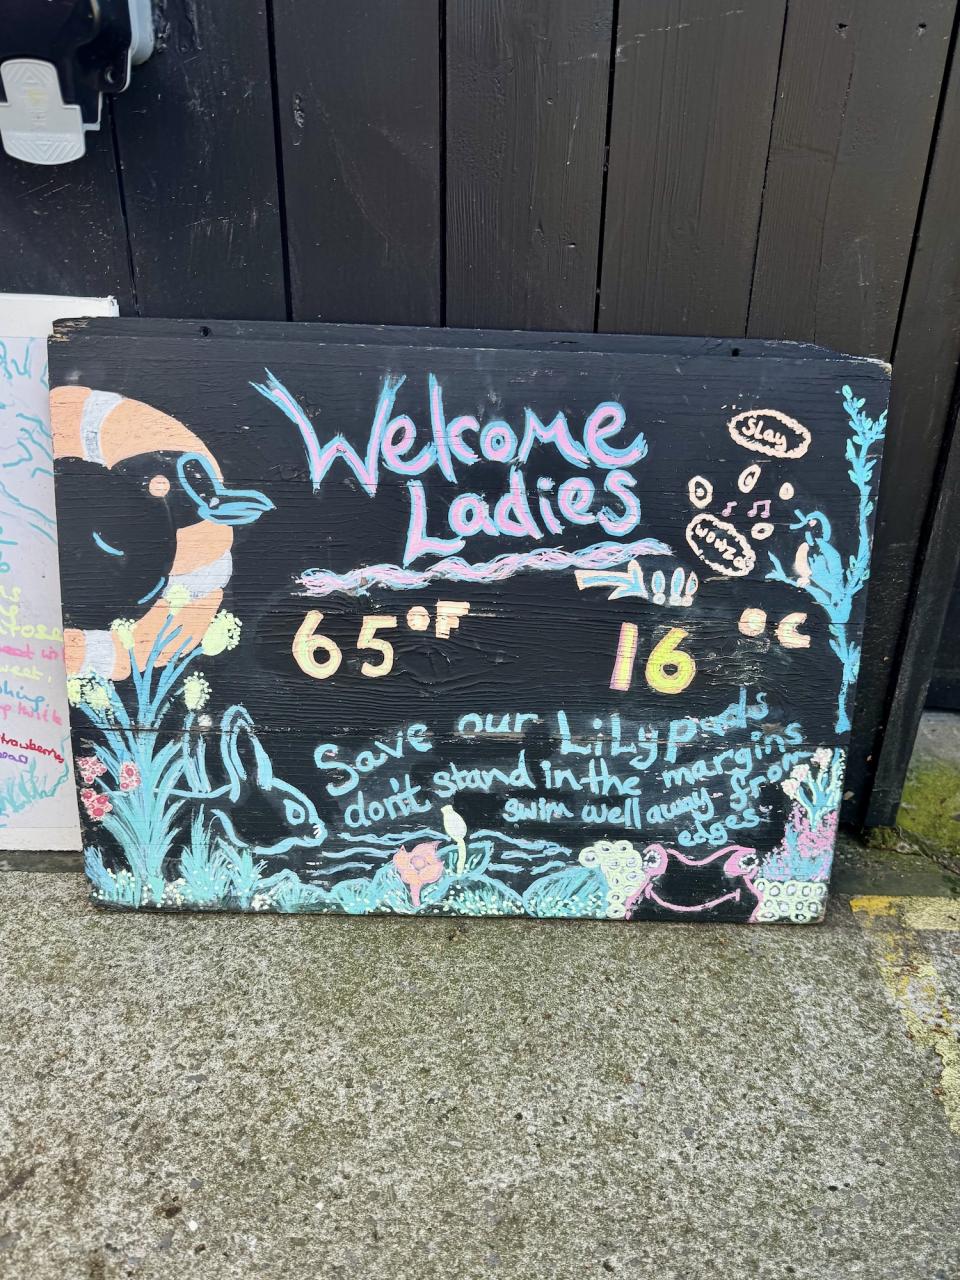 Welcome
Ladies
Slay
WOWZA
!!!
65°F
16 °C
Save our Lilypads
don't stand in the margins
swim well away from
edges